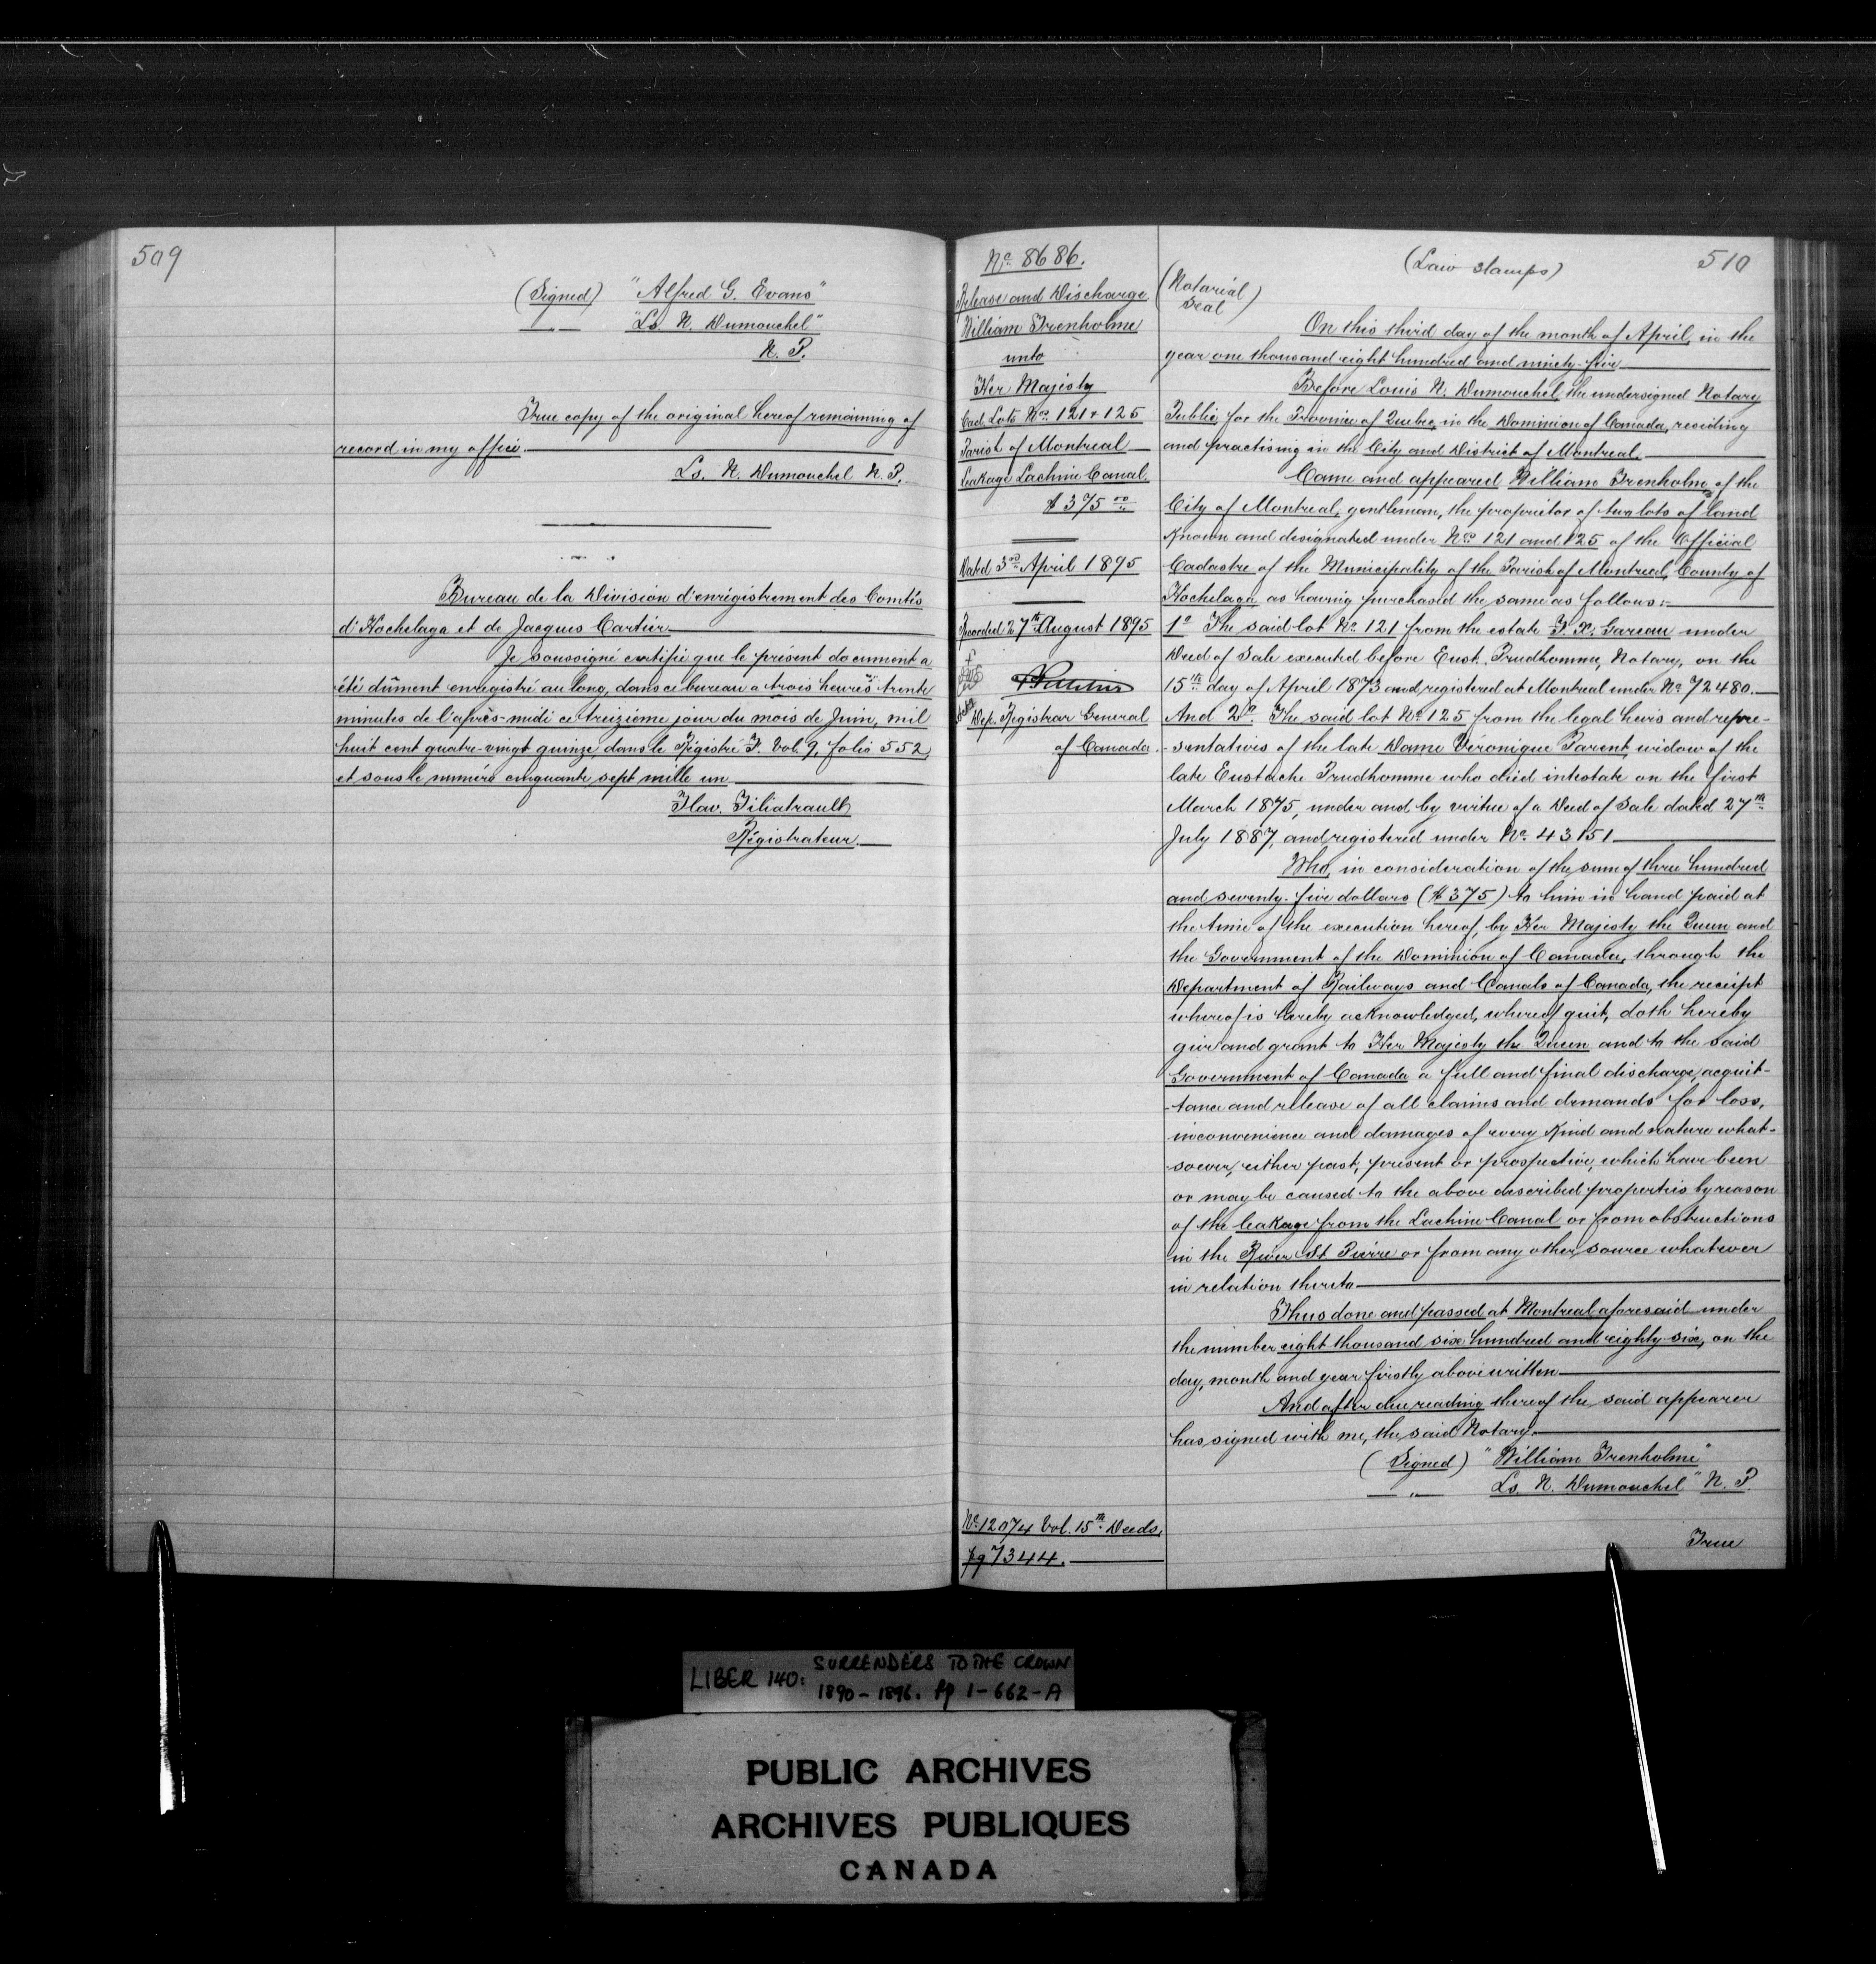 509
(Signed) "Alfred G. Evans"
—"— "Ls. N. Dumouchel"
N. P.
True copy of the original hereof remaining of
record in my office.
Ls. N. Dumouchel N. P.
Bureau de la Division d'enrégistrement des Comtés
d'Hochelaga et de Jacques Cartier
Je soussigné certifie que le présent document a
été dûment enregistré au long, dans ce bureau a trois heures trente
minutes de l'après-midi ce treizième jour du mois de Juin, mil
huit cent quatre-vingt quinze, dans le Régistre F. Vol. 9, folio 552,
et sous le numéro cinquante sept mille un
Flav. Filiatrault
Régistrateur.
No. 8686.
Release and Discharge
William Trenholme
unto
Her Majesty
Cad. Lots Nos. 121 & 125
Parish of Montreal
Leakage Lachine Canal.
$375 00
Dated 3rd April 1895
Recorded 27th August 1895
Dep. Registrar General
of Canada.
No. 12074 Vol. 15th Deeds,
pg 7344.
510
(Law stamps)
(Notarial
Seal)
On this third day of the month of April, in the
year one thousand eight hundred and ninety-five
Before Louis N. Dumouchel, the undersigned Notary
Public, for the Province of Quebec, in the Dominion of Canada, residing
and practising in the City and District of Montreal,
Came and appeared William Trenholme, of the
City of Montreal, gentleman, the proprietor of two lots of land
Known and designated under Nos. 121 and 125 of the Official
Cadastre of the Municipality of the Parish of Montreal, County of
Hochelaga as having purchased the same as follows:-
1o. The said lot No. 121 from the estate F. X. Gareau under
Deed of Sale executed before Eust. Prudhomme, Notary, on the
15th day of April 1873 and registered at Montreal under No. 72480.
And 2o. The said lot No. 125 from the legal heirs and repre-
-sentatives of the late Dame Véronique Parent, widow of the
late Eustache Prudhomme who died intestate on the first
March 1875, under and by virtue of a Deed of Sale dated 27th
July 1887, and registered under No. 43151
Who, in consideration of the sum of three hundred
and seventy-five dollars ($375) to him in hand paid at
the time of the execution hereof, by Her Majesty the Queen and
the Government of the Dominion of Canada, through the
Department of Railways and Canals of Canada, the receipt
whereof is hereby acknowledged, whereof quit, doth hereby
give and grant to Her Majesty the Queen and to the said
Government of Canada a full and final discharge, acquit-
-tance and release of all claims and demands for loss,
inconvenience and damages of every Kind and nature what-
-soever, either past, present or prospective, which have been
or may be caused to the above described properties by reason
of the leakage from the Lachine Canal or from obstructions
in the River St. Pierre or from any other source whatever
in relation thereto
Thus done and passed at Montreal aforesaid under
the number eight thousand six hundred and eighty-six, on the
day, month and year firstly above written
And after due reading thereof the said appearer
has signed with me, the said Notary.
(Signed) "William Trenholme"
—"— Ls. N. Dumouchel" N. P.
True
LIBER 140: SURRENDERS TO THE CROWN
1890-1896. Pp 1-662-A
PUBLIC ARCHIVES
ARCHIVES PUBLIQUES
CANADA